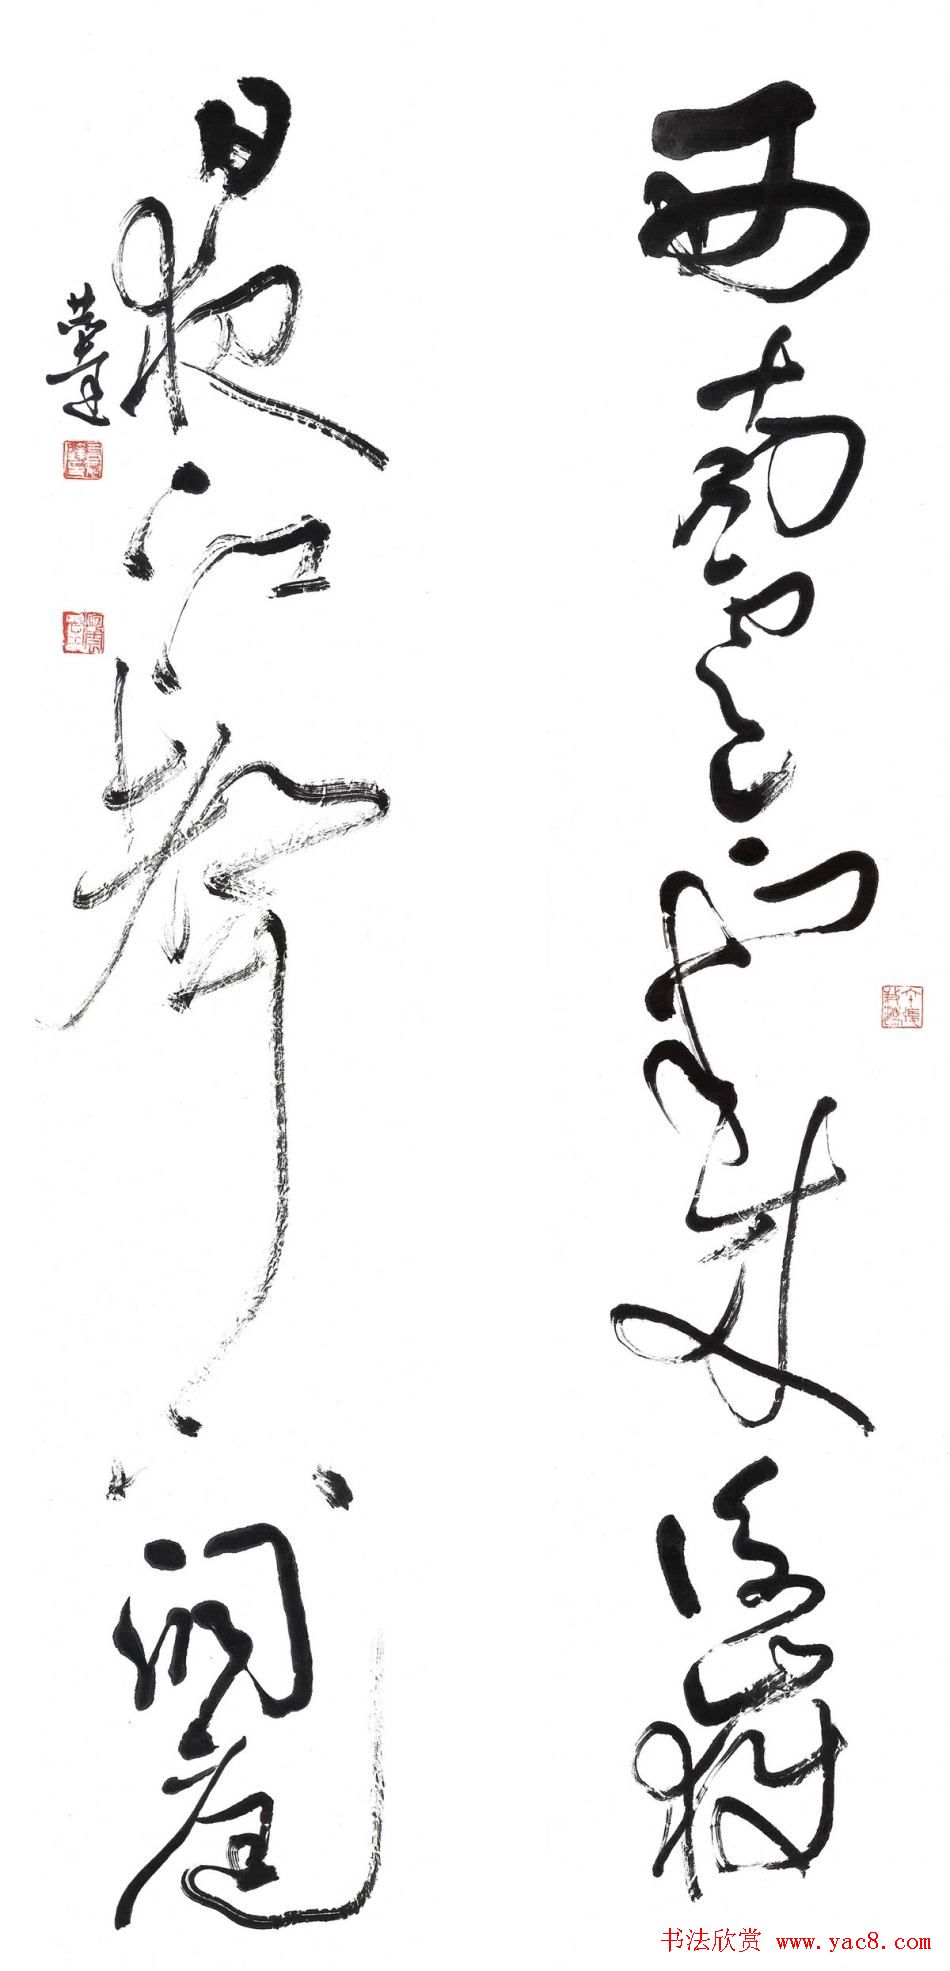 西南雲氣來衡嶽
日夜江聲下洞庭
书法欣赏 www.yac8.com